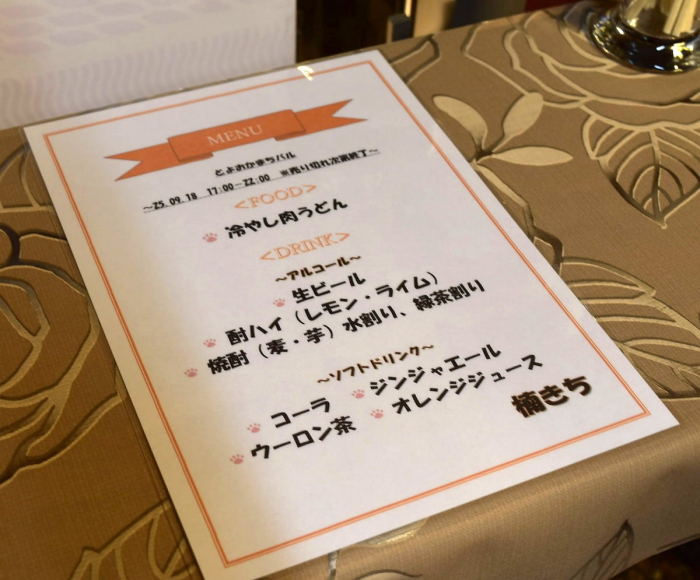 MENU
とよおかまちバル
～25.09.18 17:00～22:00 ※売り切れ次第終了～
<FOOD>
冷やし肉うどん
<DRINK>
～アルコール～
生ビール
酎ハイ（レモン・ライム）
焼酎（麦・芋）水割り、緑茶割り
～ソフトドリンク～
コーラ ジンジャエール
ウーロン茶 オレンジジュース
楠きち